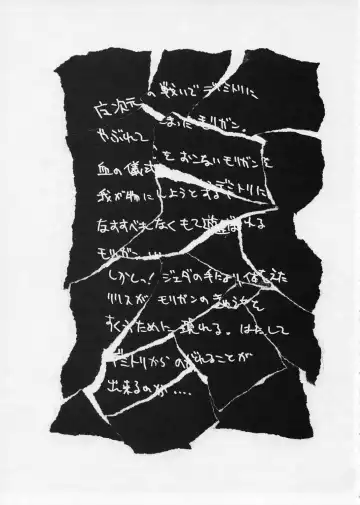 の戦いでデミトリに
やぶれてしまったモリガン。
血の儀式をおこないモリガンを
我が物にしようとするデミトリに
なすすべもなくもて遊ばれる
モリガン……
しかしっ! ジェダの手により
リリスがモリガンの
すくうために現れる。はたして
デミトリからのがれることが
出来るのか‥‥